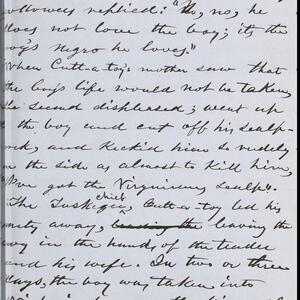 followers replied: "No, no, he
does not love the boy; it's the
boy's negro he loves."
When Cutt-a-toy's mother saw that
the boy's life would not be taken,
she seemed displeased; went up
the boy and cut off his scalp-
lock, and kick'd him so rudely
on the side as almost to kill him,
"I've got the Virginians scalp".
The Tuskegee chief Cutt-a-toy led his
party away, leaving the
boy in the hands of the trader
and his wife. In two or three
days, the boy was taken into